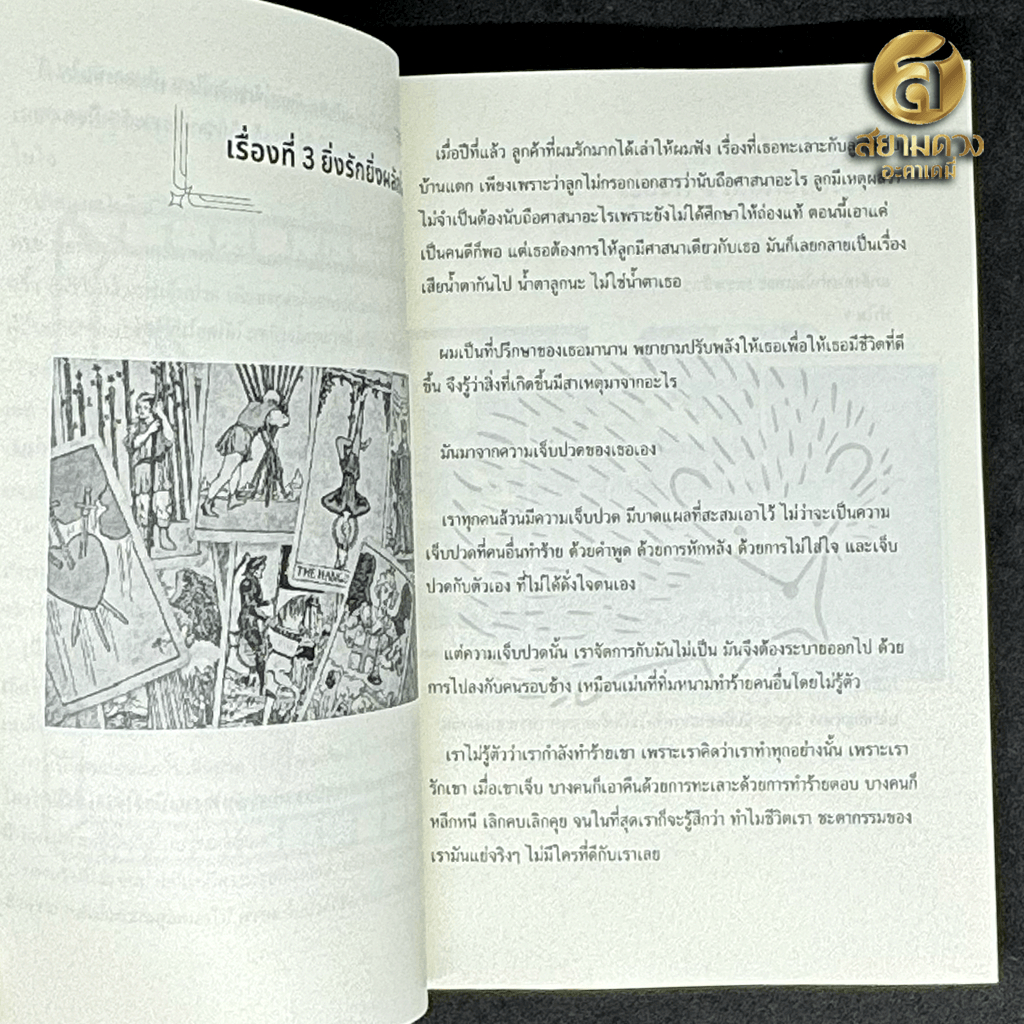 เรื่องที่ 3 ยิ่งรักยิ่งผลัก
THE HANG
ส
สยามดวง
อะคาเดมี่
เมื่อปีที่แล้ว ลูกค้าที่ผมรักมากได้เล่าให้ผมฟัง เรื่องที่เธอทะเลาะกับ
บ้านแตก เพียงเพราะว่าลูกไม่กรอกเอกสารว่านับถือศาสนาอะไร ลูกมีเหตุผล
ไม่จำเป็นต้องนับถือศาสนาอะไรเพราะยังไม่ได้ศึกษาให้ถ่องแท้ ตอนนี้เอาแค่
เป็นคนดีก็พอ แต่เธอต้องการให้ลูกมีศาสนาเดียวกับเธอ มันก็เลยกลายเป็นเรื่อง
เสียน้ำตากันไป น้ำตาลูกนะ ไม่ใช่น้ำตาเธอ
ผมเป็นที่ปรึกษาของเธอมานาน พยายามปรับพลังให้เธอเพื่อให้เธอมีชีวิตที่ดี
ขึ้น จึงรู้ว่าสิ่งที่เกิดขึ้นมีสาเหตุมาจากอะไร
มันมาจากความเจ็บปวดของเธอเอง
เราทุกคนล้วนมีความเจ็บปวด มีบาดแผลที่สะสมเอาไว้ ไม่ว่าจะเป็นความ
เจ็บปวดที่คนอื่นทำร้าย ด้วยคำพูด ด้วยการหักหลัง ด้วยการไม่ใส่ใจ และเจ็บ
ปวดกับตัวเอง ที่ไม่ได้ดั่งใจตนเอง
แต่ความเจ็บปวดนั้น เราจัดการกับมันไม่เป็น มันจึงต้องระบายออกไป ด้วย
การไปลงกับคนรอบข้าง เหมือนเม่นที่ทิ่มหนามทำร้ายคนอื่นโดยไม่รู้ตัว
เราไม่รู้ตัวว่าเรากำลังทำร้ายเขา เพราะเราคิดว่าเราทำทุกอย่างนั้น เพราะเรา
รักเขา เมื่อเขาเจ็บ บางคนก็เอาคืนด้วยการทะเลาะด้วยการทำร้ายตอบ บางคนก็
หลีกหนี เลิกคบเลิกคุย จนในที่สุดเราก็จะรู้สึกว่า ทำไมชีวิตเรา ชะตากรรมของ
เรามันแย่จริงๆ ไม่มีใครที่ดีกับเราเลย